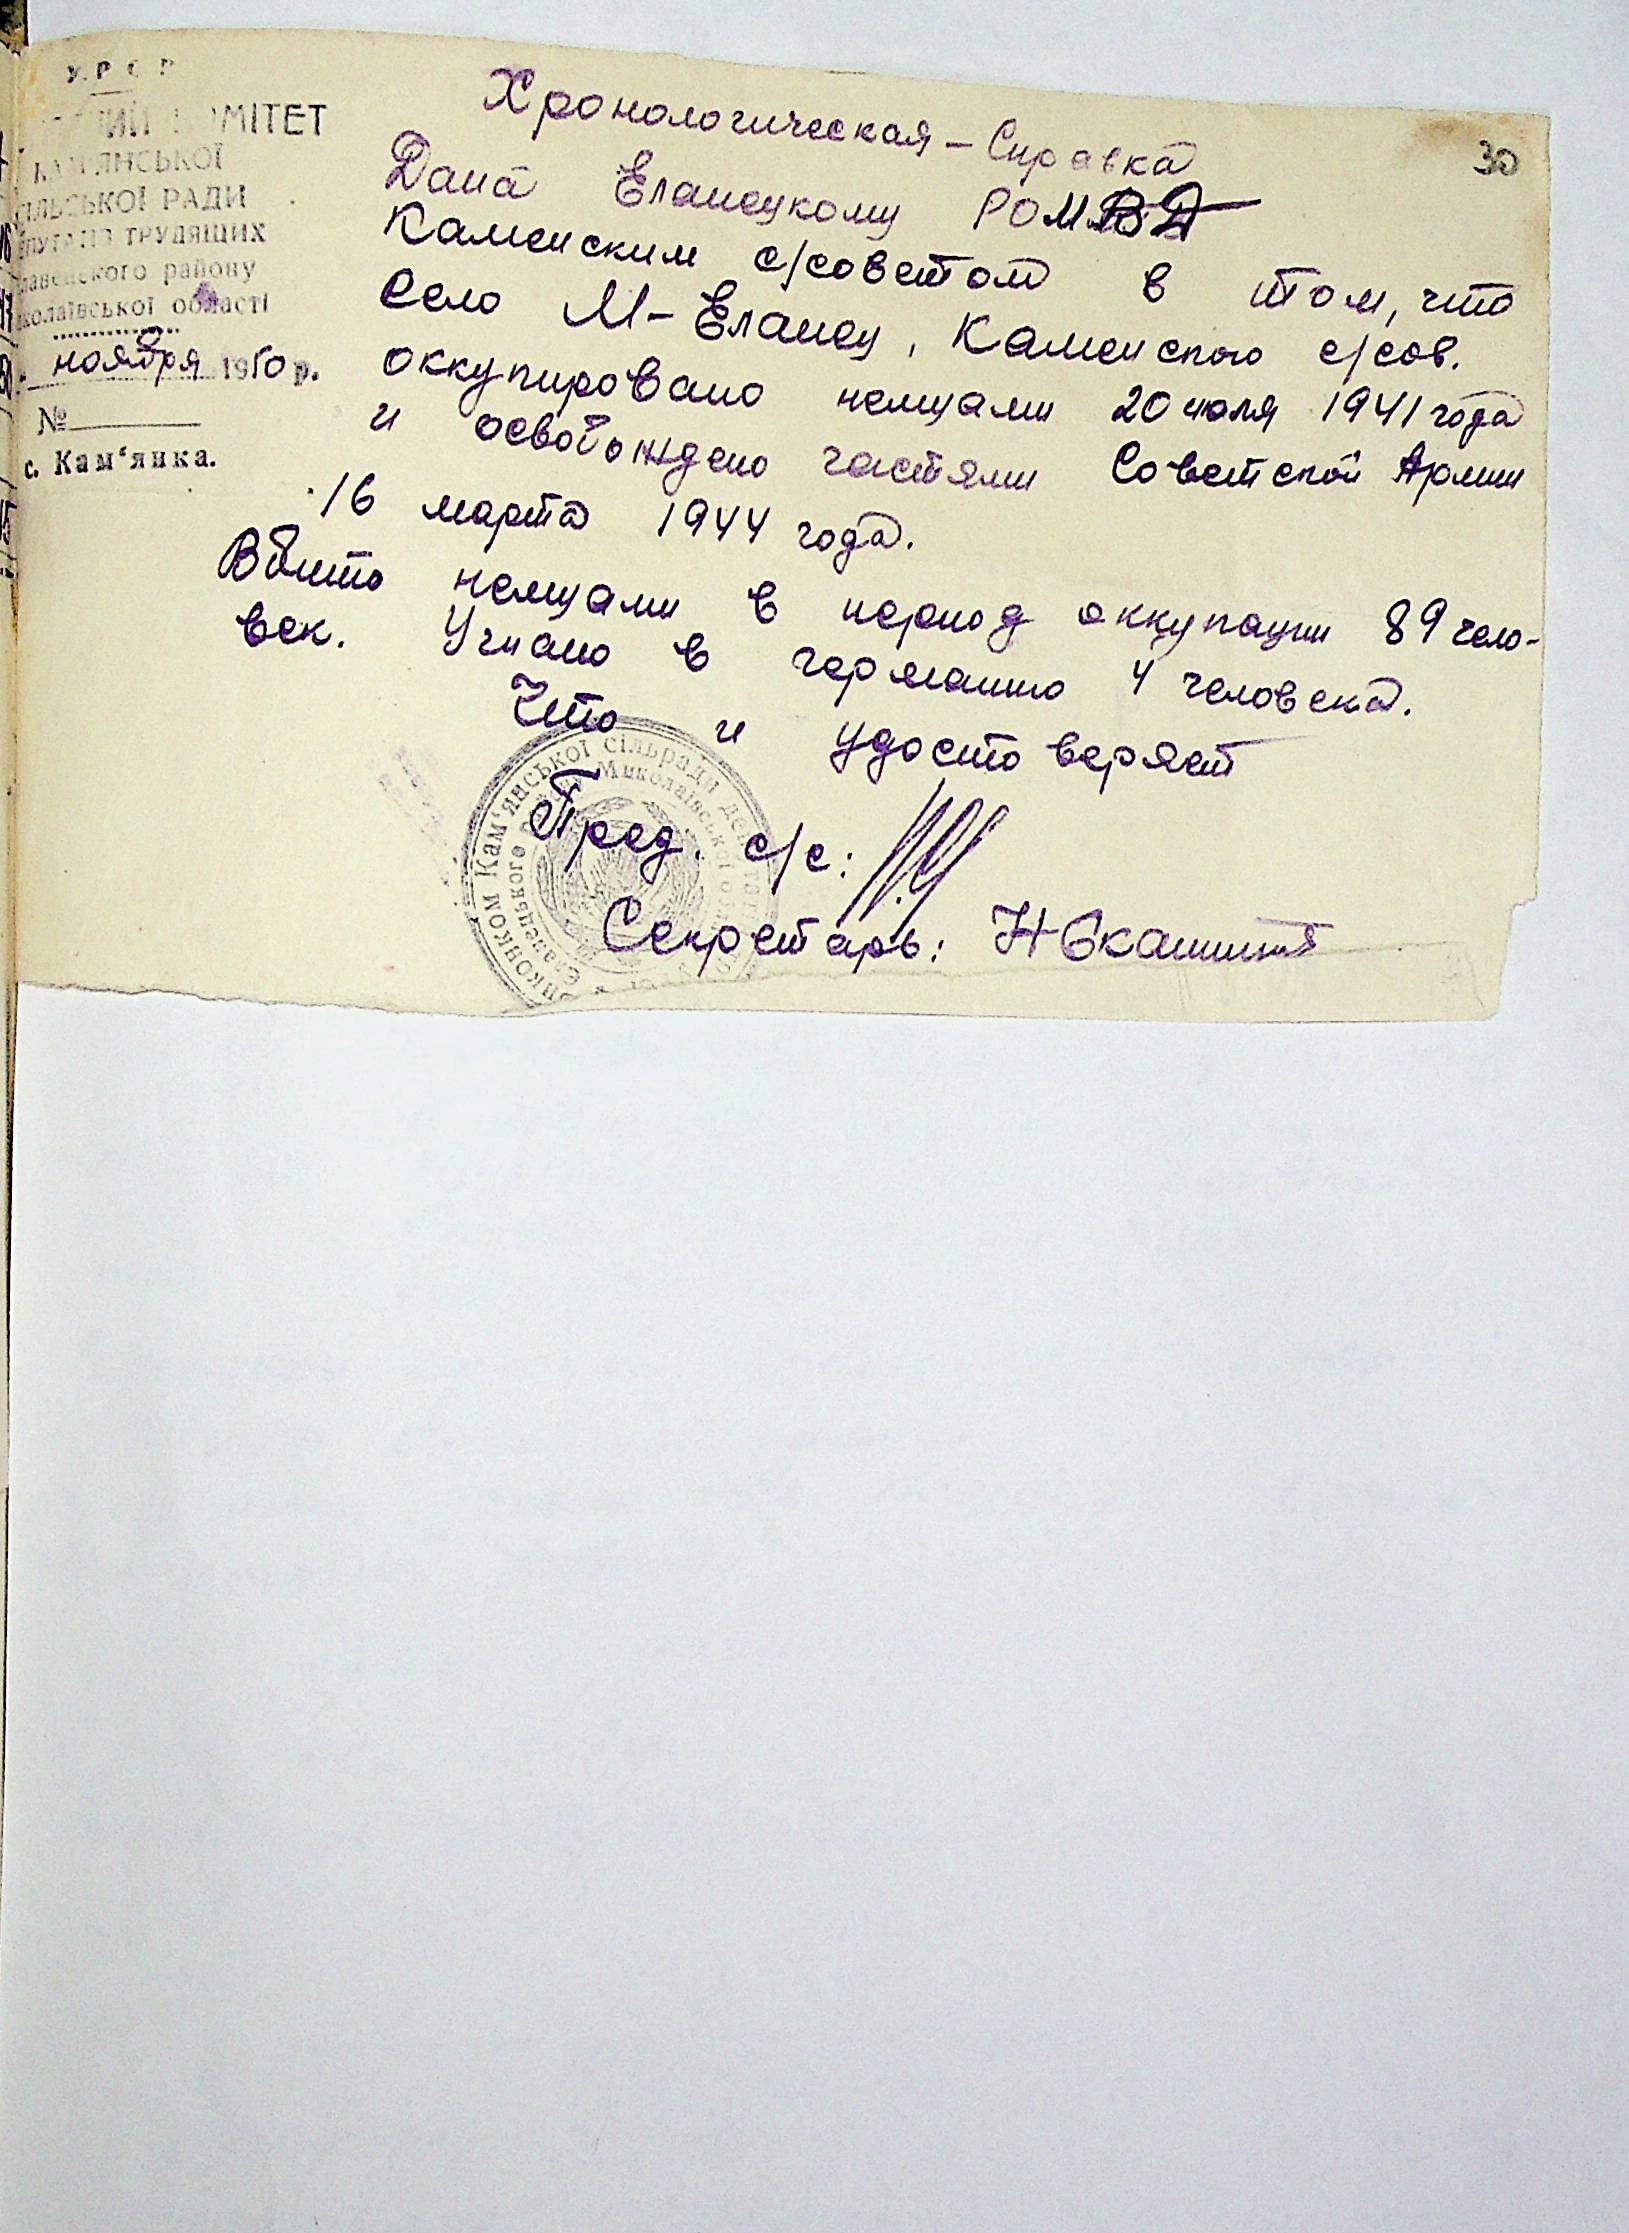 УРСР
КОМІТЕТ
КАМ'ЯНСЬКОЇ
СІЛЬСЬКОЇ РАДИ
ДЕПУТАТІВ ТРУДЯЩИХ
району
Миколаївської області
ноября 1950 р.
№
с. Кам'янка.
30
Хронологическая - Справка
Дана Еланецкому РОМВД
Каменским с/советом в том, что
село М-Еланец, Каменского с/сов.
оккупировано немцами 20 июля 1941 года
и освобождено частями Советской Армии
16 марта 1944 года.
Вбито немцами в период оккупации 89 чело-
век. Угнано в германию 4 человека.
Что и удостоверяет
Пред. с/с:
Секретарь:
Виконком Кам'янської сільради депутатів
Єланецького району Миколаївської області